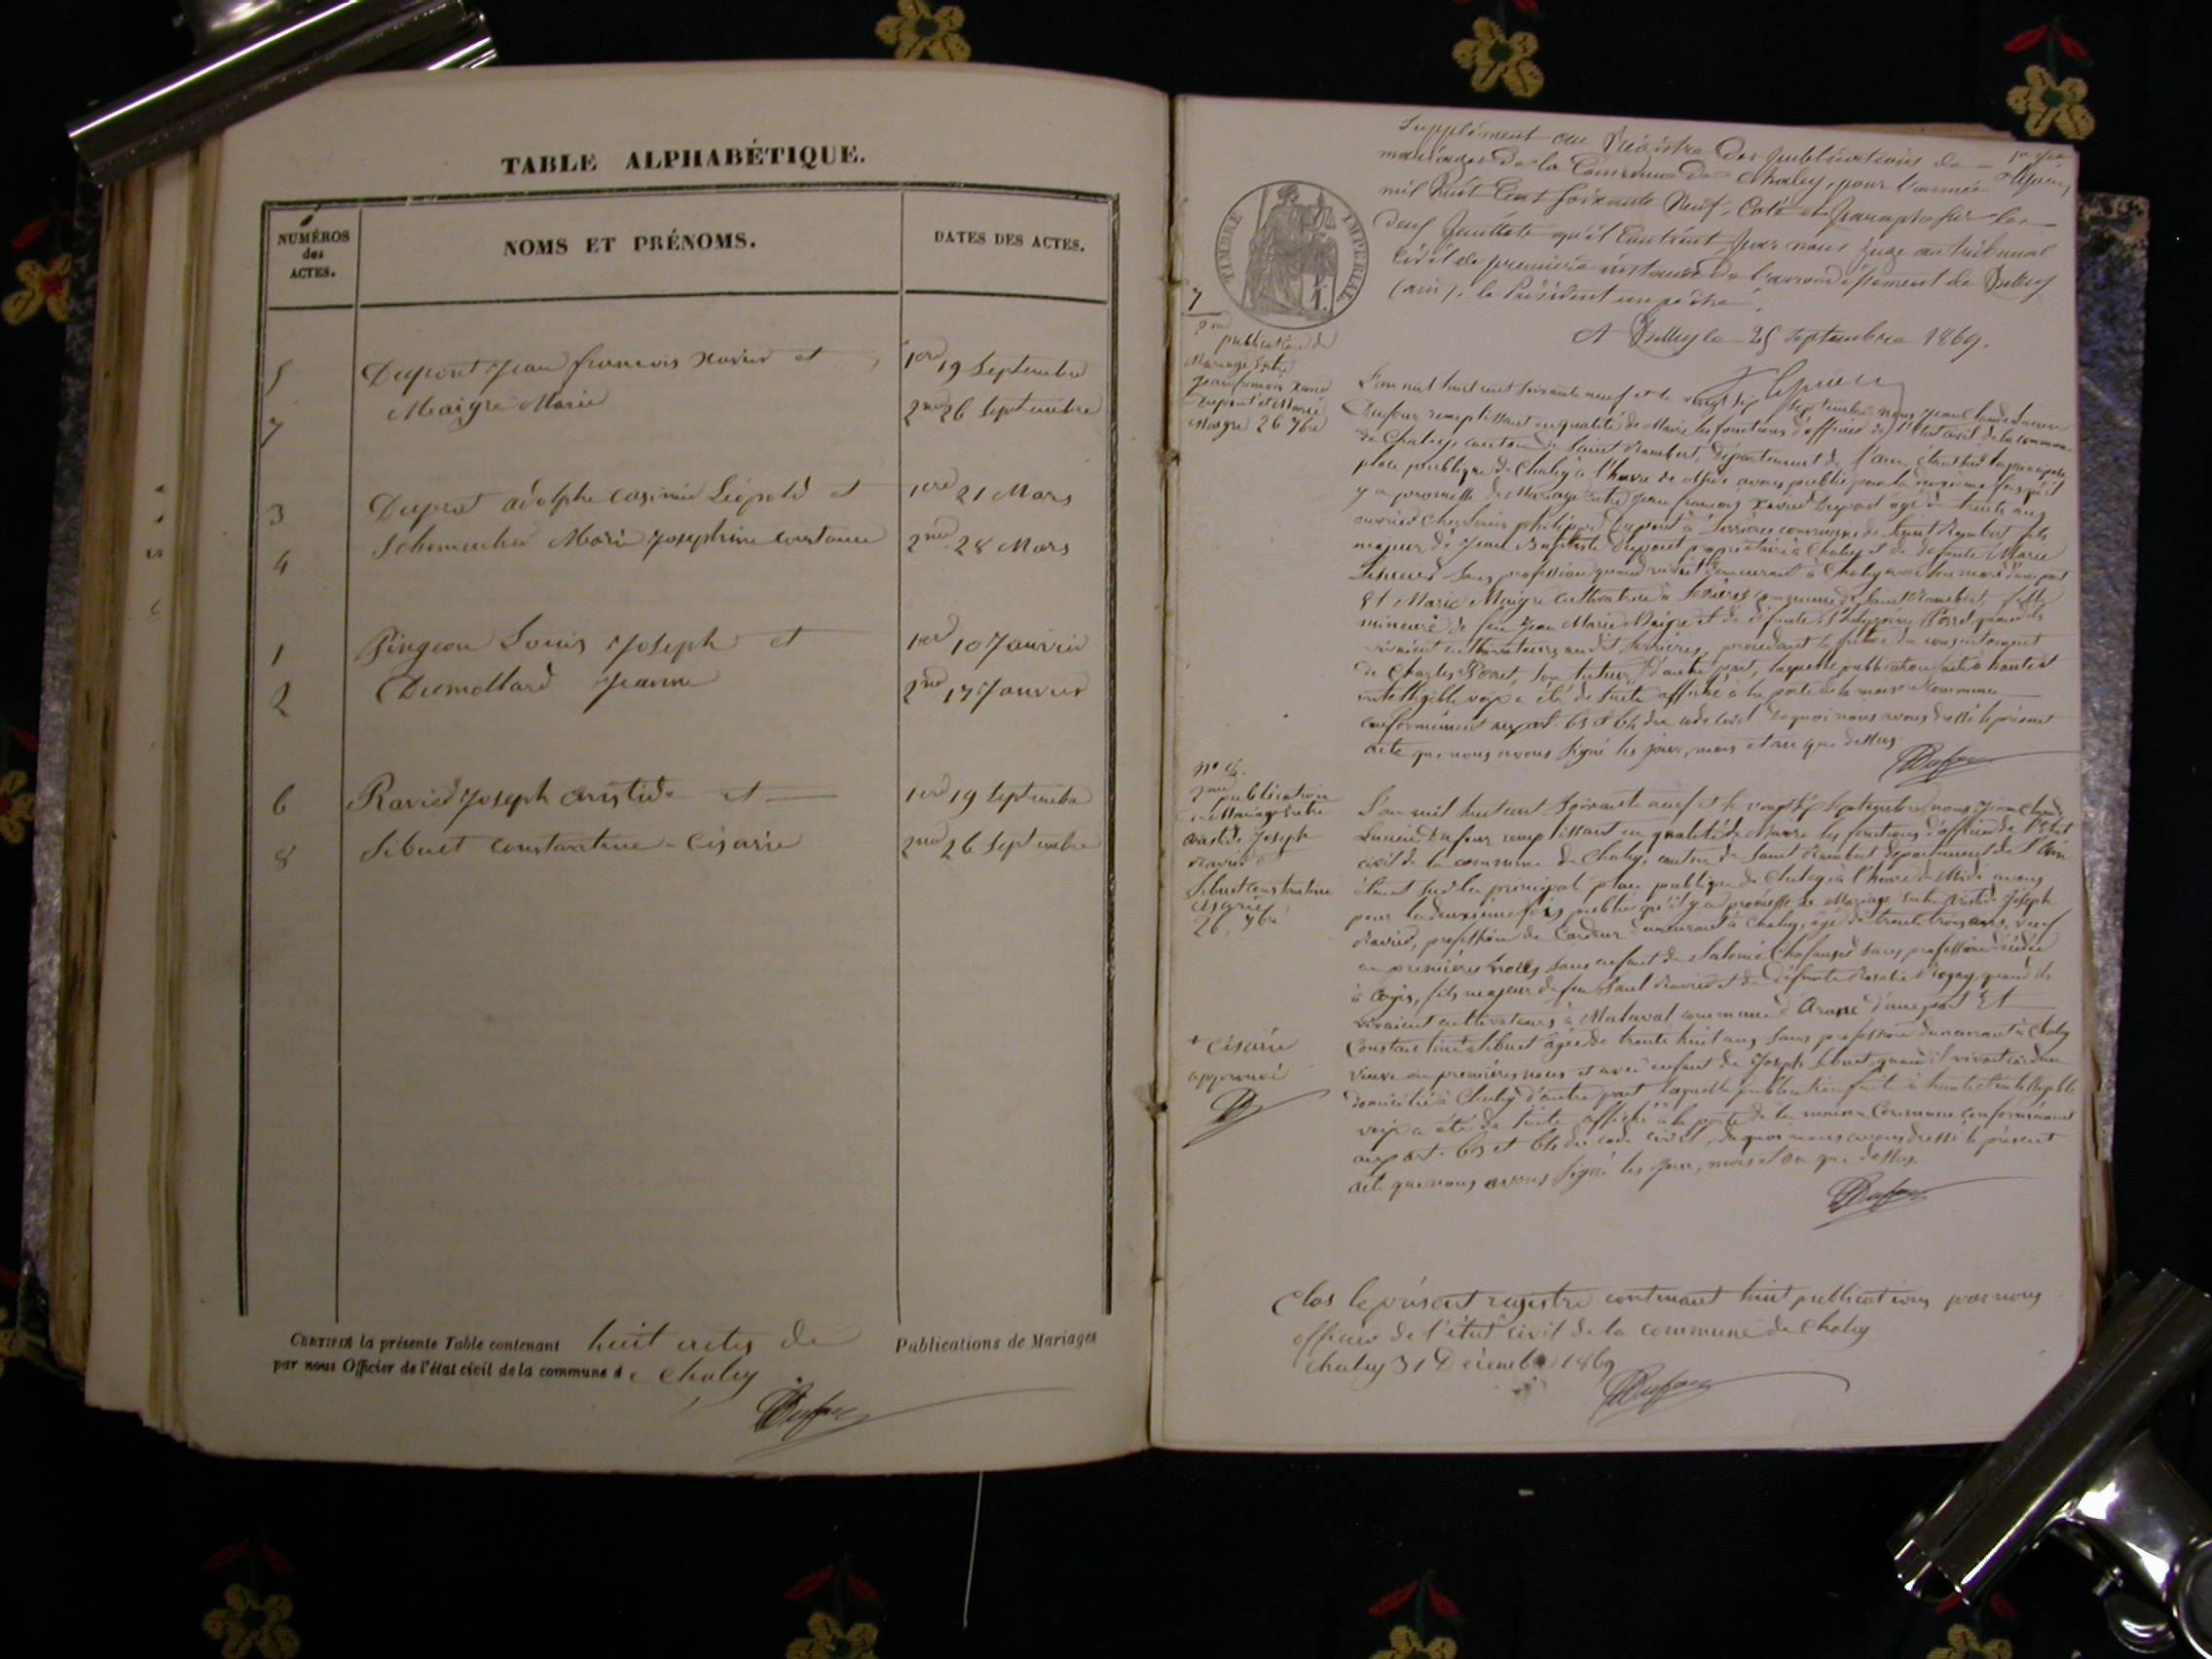 TABLE ALPHABÉTIQUE.
NUMÉROS
des
ACTES.
NOMS ET PRÉNOMS.
DATES DES ACTES.
5 Dupont Jean françois Xavier et 1ere 19 Septembre
7 Maigre Marie 2me 26 Septembre
3 Dupont adolphe Casimir Léopold et 1ere 21 Mars
4 Marie Josephine Constance 2me 28 Mars
1 Pingeon Louis Joseph et 1ere 10 Janvier
2 Dumollard Jeanne 2me 17 Janvier
6 Ravier Joseph aristide et 1ere 19 Septembre
8 Sibuet constantine Césarie 2me 26 Septembre
CERTIFIÉ la présente Table contenant huit actes de Publications de Mariages
par nous Officier de l'état civil de la commune de Chaley
Dufour
Supplément au Régistre des publications de
mariages de la Commune de Chaley, pour l'année
mil huit Cent soixante Neuf, Coté et paraphé sur les
deux feuillets qu'il Contient par nous Juge au tribunal
Civil de première instance de l'arrondissement de Belley
(ain), le Président empêché.
A Belley le 25 Septembre 1869.
TIMBRE IMPÉRIAL
7
2me
publication de
Mariage Entre
Jean francois Xavier
Dupont et Marie
Maigre 26 7bre
L'an mil huit cent soixante neuf et le vingt six Septembre, nous Jean Claude Lucien
Dufour remplissant en qualité de Maire les fonctions d'officier de l'Etat civil de la commune
de Chaley, canton de Saint Rambert, département de l'ain, étant sur la principale
place publique de Chaley à l'heure de Midi, avons publié pour la deuxième fois qu'il
y a promesse de Mariage entre Jean françois Xavier Dupont agé de trente ans
ouvrier chez Louis philippe Dupont à Serrières commune de Saint Rambert, fils
majeur de Jean Baptiste Dupont propriétaire à Chaley et de défunte Marie
sans profession quand vivait demeurant à Chaley avec son mari d'une part
Et Marie Maigre cultivatrice à Serrières commune de Saint Rambert, fille
mineure de feu Jean Marie Maigre et de défunte Porret quand ils
vivaient cultivateurs au dit Serrières, procédant la future du consentement
de Charles Porret, son tuteur, d'autre part, laquelle publication faite à haute et
intelligible voix a été de suite affichée à la porte de la maison commune
conformément aux art. 63 et 64 du code civil. de quoi nous avons dressé le présent
acte que nous avons signé les jour, mois et an que dessus.
Dufour
No 8.
2me publication
de Mariage Entre
aristide Joseph
Ravier et
Sibuet constantine
Césarie
26 7bre
L'an mil huit cent soixante neuf et le vingt six Septembre, nous Jean Claude
Lucien Dufour remplissant en qualité de Maire les fonctions d'officier de l'Etat
civil de la commune de Chaley, canton de Saint Rambert département de l'Ain
étant sur la principale place publique de Chaley à l'heure de Midi avons
pour la deuxième fois publié qu'il y a promesse de Mariage Entre aristide Joseph
Ravier, profession de Cardeur demeurant à Chaley, agé de trente trois ans, veuf
en premières noces sans enfant de Salomé sans profession décédée
à fils majeur de feu Paul Ravier et de défunte Rosalie quand ils
vivaient cultivateurs à Malaval commune d'Aranc d'une part Et
Constantine + Sibuet agée de trente huit ans sans profession demeurant à Chaley
veuve en premières noces et avec enfant de Joseph Sibuet quand il vivait cardeur
domicilié à Chaley d'autre part laquelle publication faite à haute et intelligible
voix a été de suite affichée à la porte de la maison Commune conformément
aux art. 63 et 64 du code civil, de quoi nous avons dressé le présent
acte que nous avons signé les jour, mois et an que dessus.
+ Césarie
approuvé
Dufour
Clos le présent registre contenant huit publications par nous
officier de l'état civil de la commune de Chaley
Chaley 31 Décembre 1869
Dufour